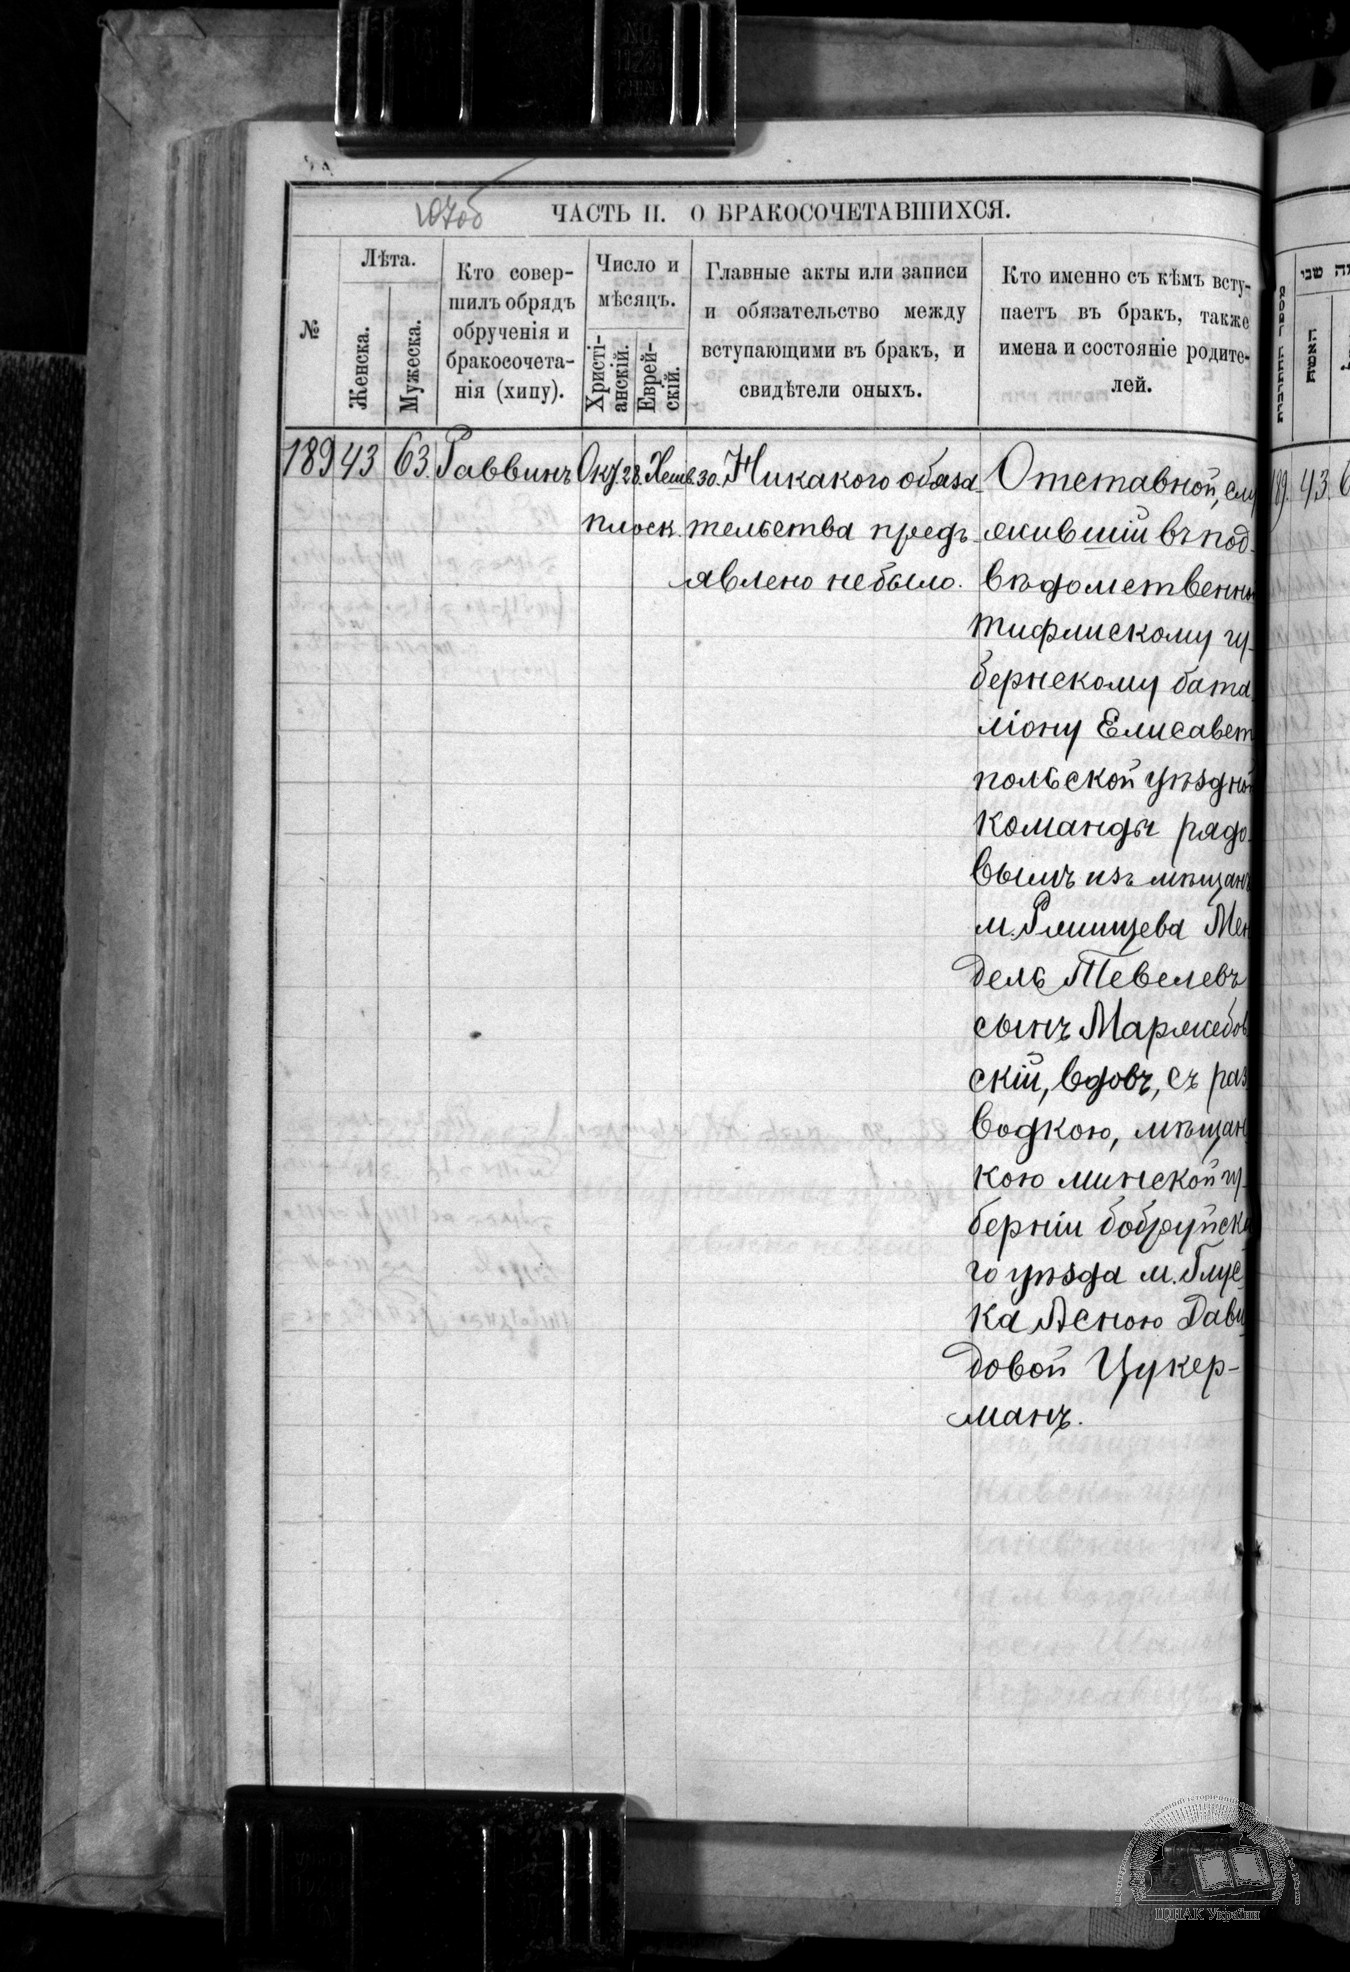 107об
ЧАСТЬ II. О БРАКОСОЧЕТАВШИХСЯ.
№
Лѣта.
Женска.
Мужеска.
Кто совер-
шилъ обрядъ
обрученія и
бракосочета-
нія (хипу).
Число и
мѣсяцъ.
Христі-
анскій.
Еврей-
скій.
Главные акты или записи
и обязательство между
вступающими въ бракъ, и
свидѣтели оныхъ.
Кто именно съ кѣмъ всту-
паетъ въ бракъ, также
имена и состояніе родите-
лей.
189 43 63. Раввинъ Окт. 28. Хешв. 30. Никакого обяза-
плоск. тельства предъ-
явлено не было.
Отставной, слу
жившій въ под-
вѣдомственно
Тифлискому гу-
бернскому бата
ліону Елисавет
польской уѣздной
команды рядо-
вымъ изъ мѣщанъ
м. Ржищева Мен
дель Тевелевъ
сынъ Маржебов
скій, вдовъ, съ раз
водкою, мѣщан
кою минской гу-
берніи бобруйска
го уѣзда м. Глус
ка Асною Дави
довой Цукер-
манъ.
האשה
189. 43. 6
ЦДІАК України